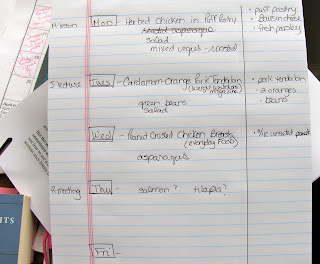 Mon - Herbed Chicken in Puff Pastry
roasted asparagus
salad
mixed vegets - roasted
• puff pastry
• boursin chese
• fresh parsley
J-lecture
Tues - Cardamom-Orange Pork Tenderloin
magazine)
green beans
salad
• pork tenderloin
• 2 oranges
• beans
Wed - Peanut Crusted Chicken Breasts
(everyday Food)
asparagus
Thu - salmon? tilapia?
Fri -